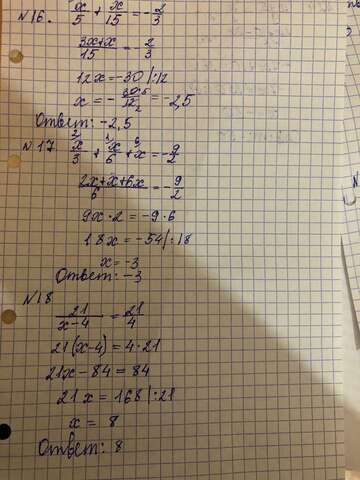 №16. x/5 + x/15 = -2/3
3x+x/15 = -2/3
12x = -30 |:12
x = -30/12 = -2,5
Ответ: -2,5
№17 x/3 + x/6 + x = -9/2
2x+x+6x/6 = -9/2
9x·2 = -9·6
18x = -54 |:18
x = -3
Ответ: -3
№18
21/x-4 = 21/4
21(x-4) = 4·21
21x-84 = 84
21x = 168 |:21
x = 8
Ответ: 8